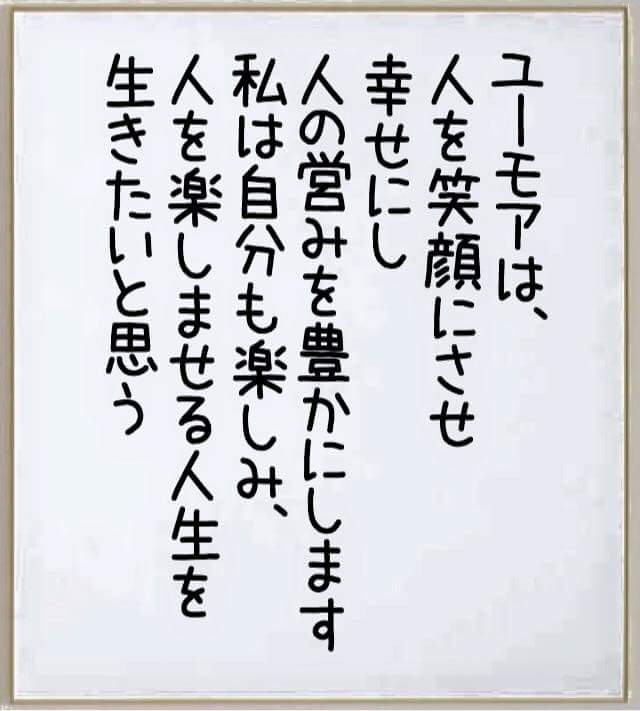 ユーモアは、
人を笑顔にさせ
幸せにし
人の営みを豊かにします
私は自分も楽しみ、
人を楽しませる人生を
生きたいと思う